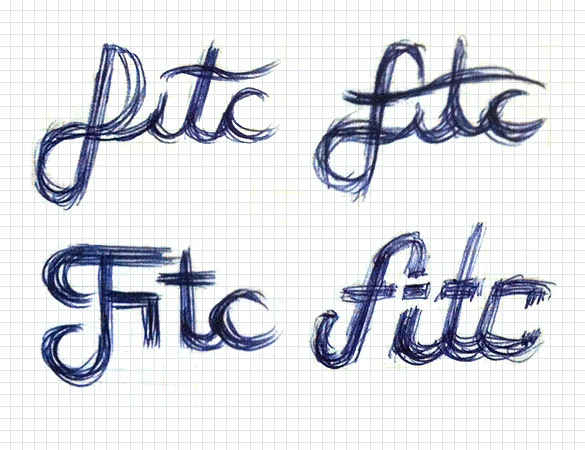 fitc fitc
Fitc fitc